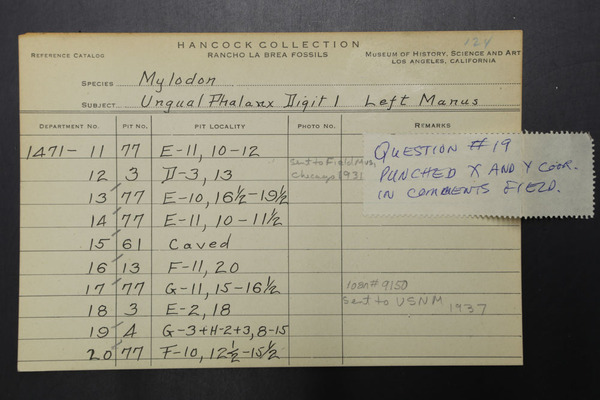 124
HANCOCK COLLECTION
REFERENCE CATALOG RANCHO LA BREA FOSSILS MUSEUM OF HISTORY, SCIENCE AND ART
LOS ANGELES, CALIFORNIA
SPECIES Mylodon
SUBJECT Ungual Phalanx Digit 1 Left Manus
DEPARTMENT NO. PIT NO. PIT LOCALITY PHOTO NO. REMARKS
1471- 11 77 E-11, 10-12
12 3 D-3, 13 sent to Field Mus. Chicago 1931
13 77 E-10, 16½-19½
14 77 E-11, 10-11½
15 61 Caved
16 13 F-11, 20
17 77 G-11, 15-16½ loan# 9150
18 3 E-2, 18 sent to USNM 1937
19 4 G-3+H-2+3, 8-15
20 77 F-10, 12½-15½
QUESTION #19
PUNCHED X AND Y COOR.
IN COMMENTS FIELD.